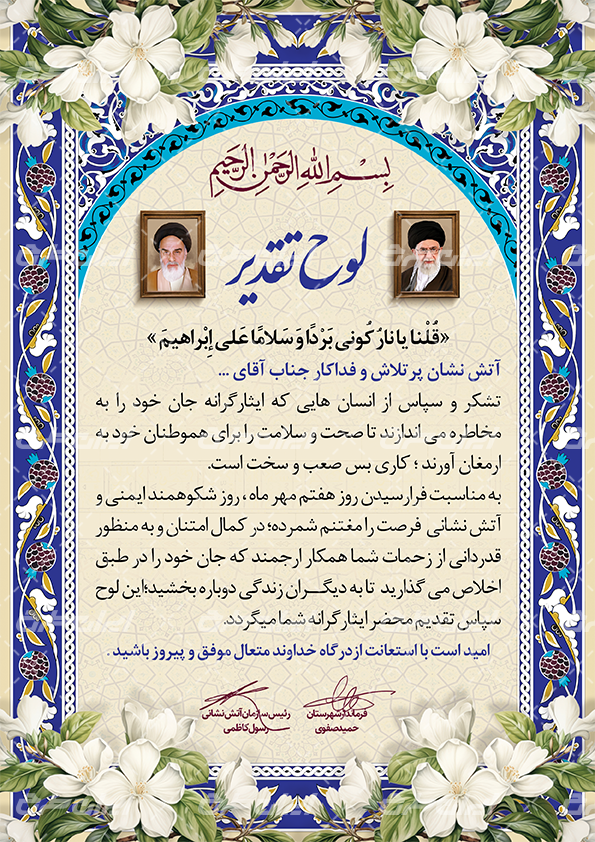 بِسْمِ اللهِ الرَّحْمٰنِ الرَّحِيمِ
لوح تقدیر
«قُلْنا یا نارُ کُونی بَرْدًا وَ سَلامًا عَلی إِبْراهیمَ»
آتش نشان پر تلاش و فداکار جناب آقای ...
تشکر و سپاس از انسان هایی که ایثارگرانه جان خود را به
مخاطره می اندازند تا صحت و سلامت را برای هموطنان خود به
ارمغان آورند ؛ کاری بس صعب و سخت است.
به مناسبت فرا رسیدن روز هفتم مهر ماه ، روز شکوهمند ایمنی و
آتش نشانی فرصت را مغتنم شمرده؛ در کمال امتنان و به منظور
قدردانی از زحمات شما همکار ارجمند که جان خود را در طبق
اخلاص می گذارید تا به دیگـــران زندگی دوباره بخشید؛این لوح
سپاس تقدیم محضر ایثارگرانه شما میگردد.
امید است با استعانت از درگاه خداوند متعال موفق و پیروز باشید .
فرماندار شهرستان
حمید صفوی
رئیس سازمان آتش نشانی
رسول کاظمی